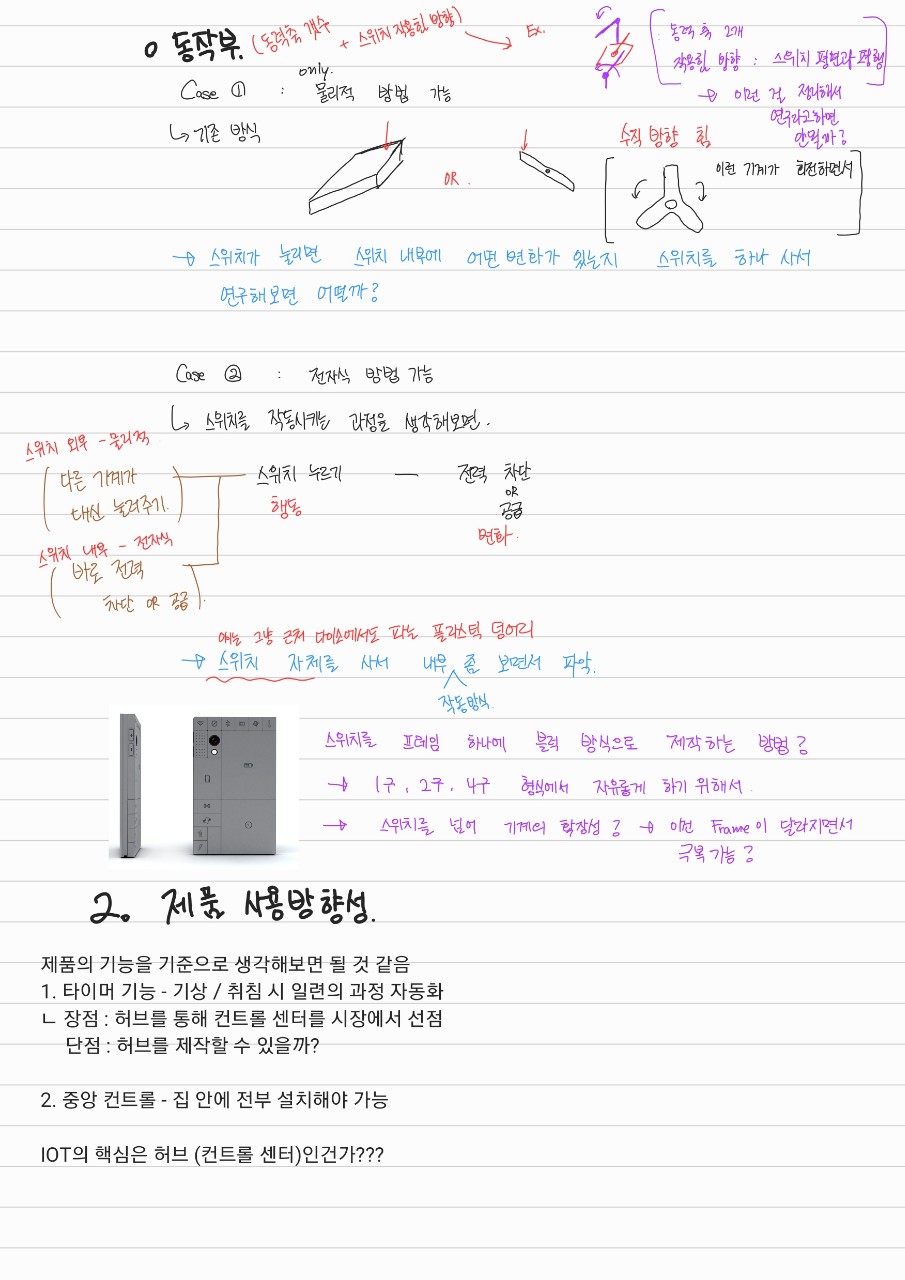 ○ 동작부. (동력축 갯수 + 스위치 작용힘 방향) → Ex.
동력 축 2개
작용힘 방향 : 스위치 평면과 평행
→ 이런 걸 정리해서
연구라고하면
안될까?
only.
Case ① : 물리적 방법 가능
↳ 기존 방식
OR.
수직 방향 힘
이런 기계가 회전하면서
→ 스위치가 눌리면 스위치 내부에 어떤 변화가 있는지 스위치를 하나 사서
연구해보면 어떨까?
Case ② : 전자식 방법 가능
↳ 스위치를 작동시키는 과정을 생각해보면.
스위치 외부 - 물리적
(다른 기계가
대신 눌러주기.)
스위치 누르기 — 전력 차단
OR
공급
행동
변화.
스위치 내부 - 전자식
(바로 전력
차단 OR 공급).
얘는 그냥 근처 다이소에서도 파는 플라스틱 덩어리
→ 스위치 자체를 사서 내부 좀 보면서 파악.
작동방식.
스위치를 프레임 하나에 블럭 방식으로 제작하는 방법?
→ 1구, 2구, 4구 형식에서 자유롭게 하기 위해서.
→ 스위치를 넘어 기계의 확장성? → 이건 Frame이 달라지면서
극복 가능?
2. 제품 사용방향성.
제품의 기능을 기준으로 생각해보면 될 것 같음
1. 타이머 기능 - 기상 / 취침 시 일련의 과정 자동화
ㄴ 장점 : 허브를 통해 컨트롤 센터를 시장에서 선점
단점 : 허브를 제작할 수 있을까?
2. 중앙 컨트롤 - 집 안에 전부 설치해야 가능
IOT의 핵심은 허브 (컨트롤 센터)인건가???